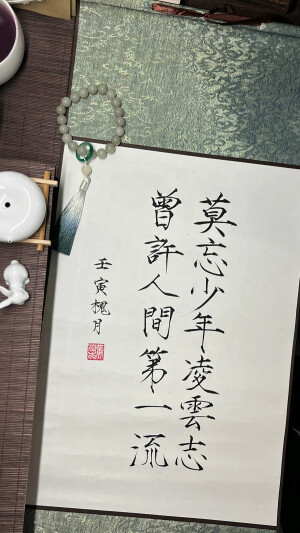 莫忘少年凌雲志
曾許人間第一流
壬寅槐月